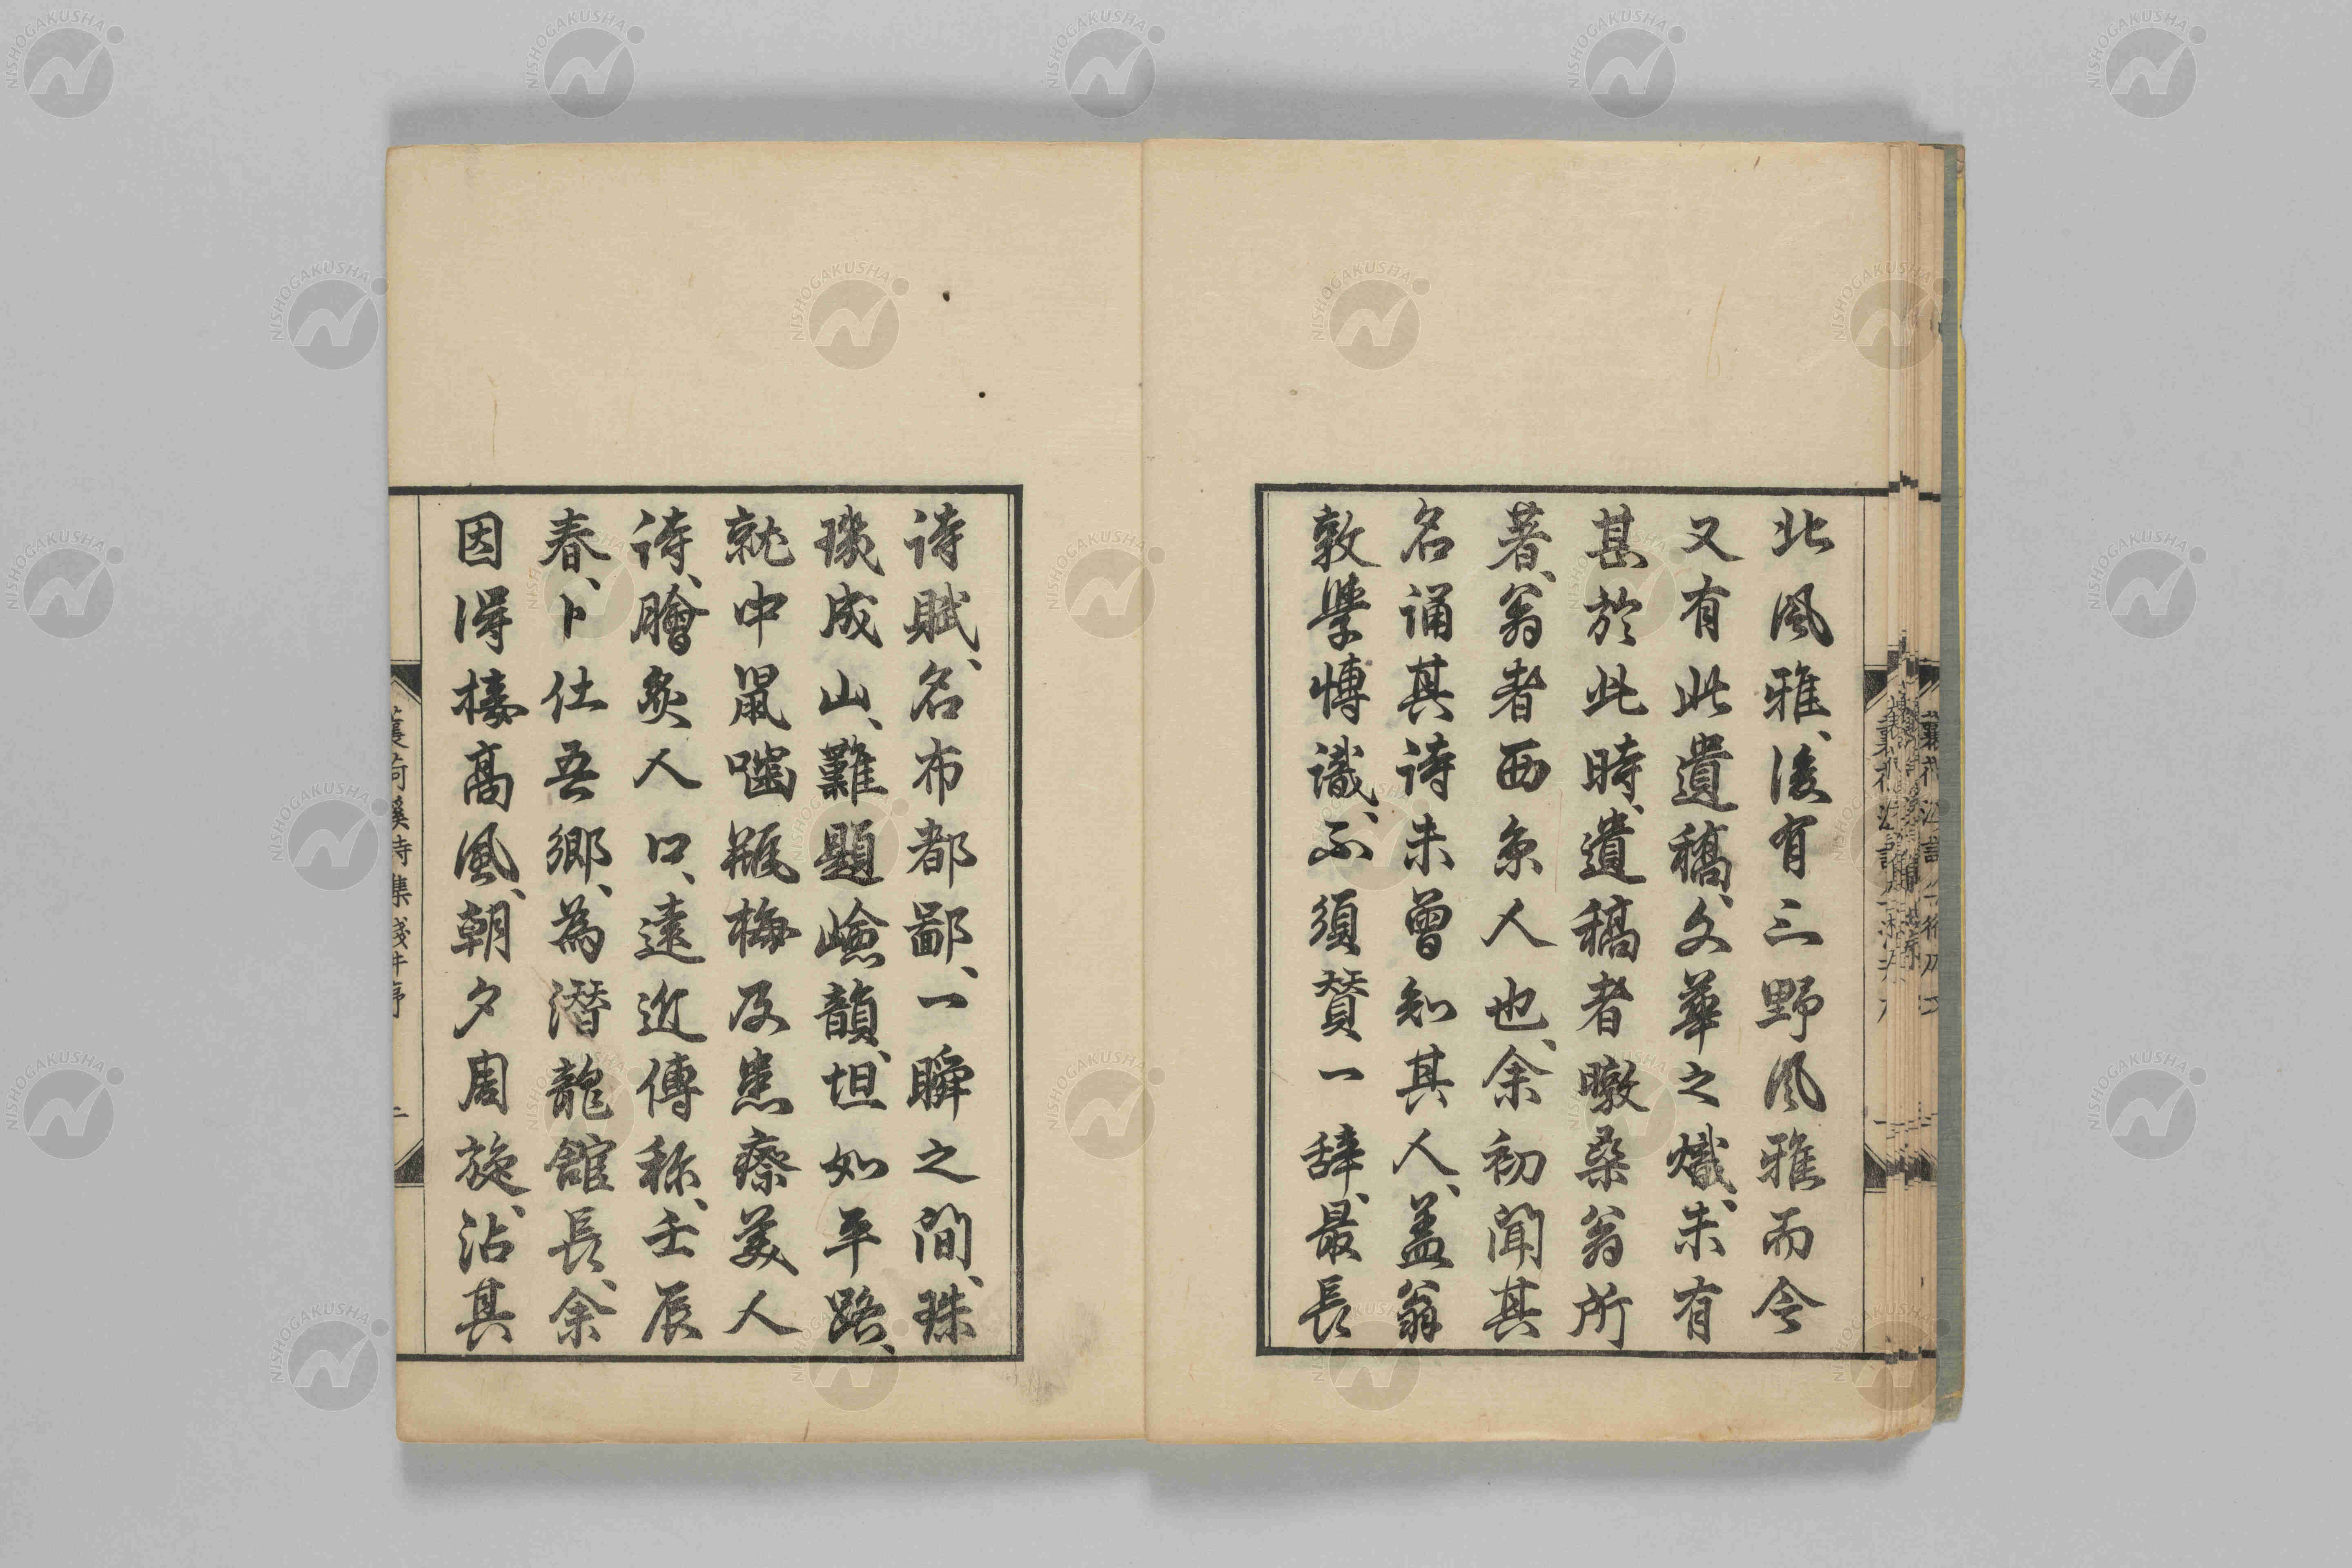 北風雅、後有三野風雅而今
又有此遺稿、文華之熾、未有
甚於此時、遺稿者暾桑翁所
著、翁者西京人也、余初聞其
名誦其詩未曾知其人、蓋翁
敦學博識、不須賛一辞、最長
詩賦、名布都鄙、一瞬之間、珠
璣成山、難題嶮韻、坦如平路、
就中鼠囓瓶梅及患瘵美人
詩、膾炙人口、遠近傳称、壬辰
春、卜仕吾郷、為潜龍館長、余
因得接高風、朝夕周旋、沾其
NISHOGAKUSHA